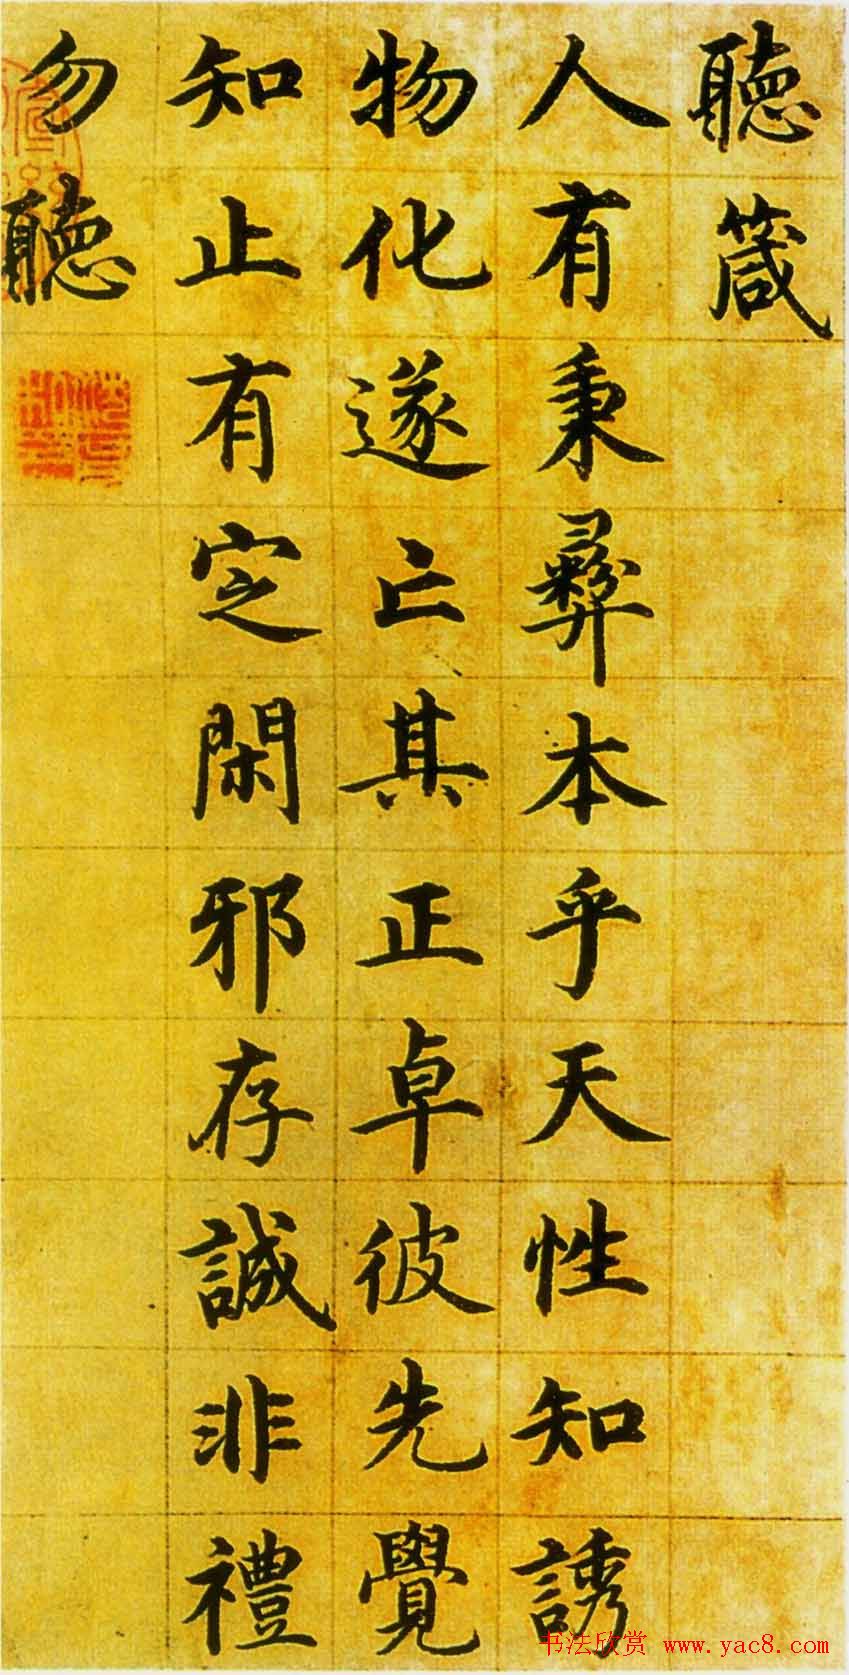 聽箴
人有秉彝本乎天性知誘
物化遂亡其正卓彼先覺
知止有定閑邪存誠非禮
勿聽
书法欣赏 www.yac8.com